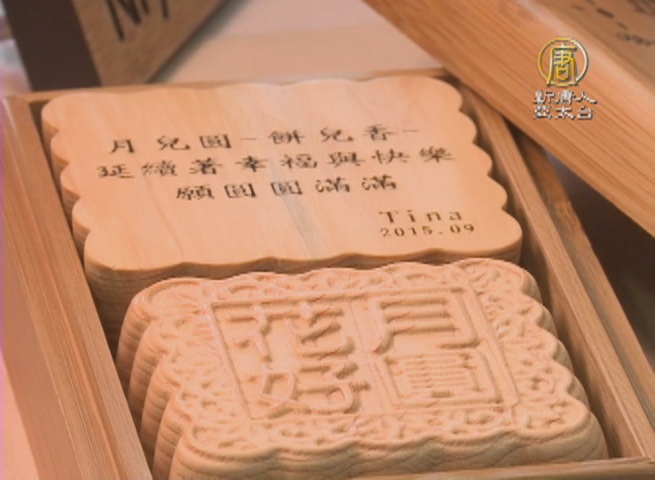 月兒圓~餅兒香~
延續著幸福與快樂
願圓圓滿滿
Tina
2015.09
花好
月圓
唐
新唐人
亞太台